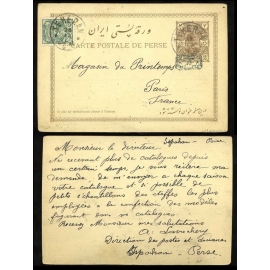 ورقه پستی ایران
CARTE POSTALE DE PERSE
Magasin du Printemps
Paris
France
Monsieur le directeur Ispahan - Perse
Ne recevant plus de catalogues depuis
un certain temps je vous réitère ma
demande, de m'envoyer à chaque saison
votre catalogue et si possible de
petits échantillons des étoffes les plus
employées à la confection des modèles
figurant dans vos catalogues
Recevez Monsieur mes salutations
Direction des postes et douanes
Ispahan - Perse